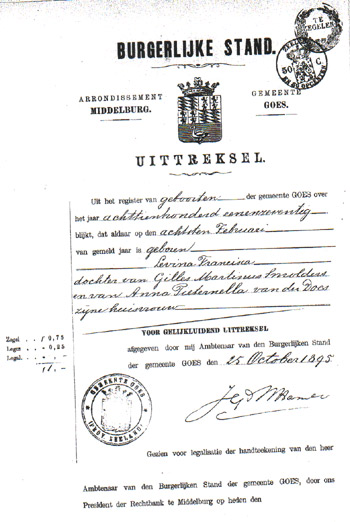 TE
ZEGELEN
50 C.
BURGERLIJKE STAND.
ARRONDISSEMENT
MIDDELBURG.
GEMEENTE
GOES.
UITTREKSEL.
Uit het register van geboorten der gemeente GOES over
het jaar achttienhonderd eenenzeventig
blijkt, dat aldaar op den achtsten Februari
van gemeld jaar is geboren
Levina Francina
dochter van Gilles Martinus
en van Anna Pieternella van der Does
zijne huisvrouw
VOOR GELIJKLUIDEND UITTREKSEL
Zegel . . . f 0,75
Leges . . . - 0,25
Legal. . . - , -
f 1. -
afgegeven door mij Ambtenaar van den Burgerlijken Stand
der gemeente GOES den 25 October 1895
GEMEENTE GOES
(PROV. ZEELAND)
Gezien voor legalisatie der handteekening van den heer
Ambtenaar van den Burgerlijken Stand der gemeente GOES, door ons
President der Rechtbank te Middelburg op heden den